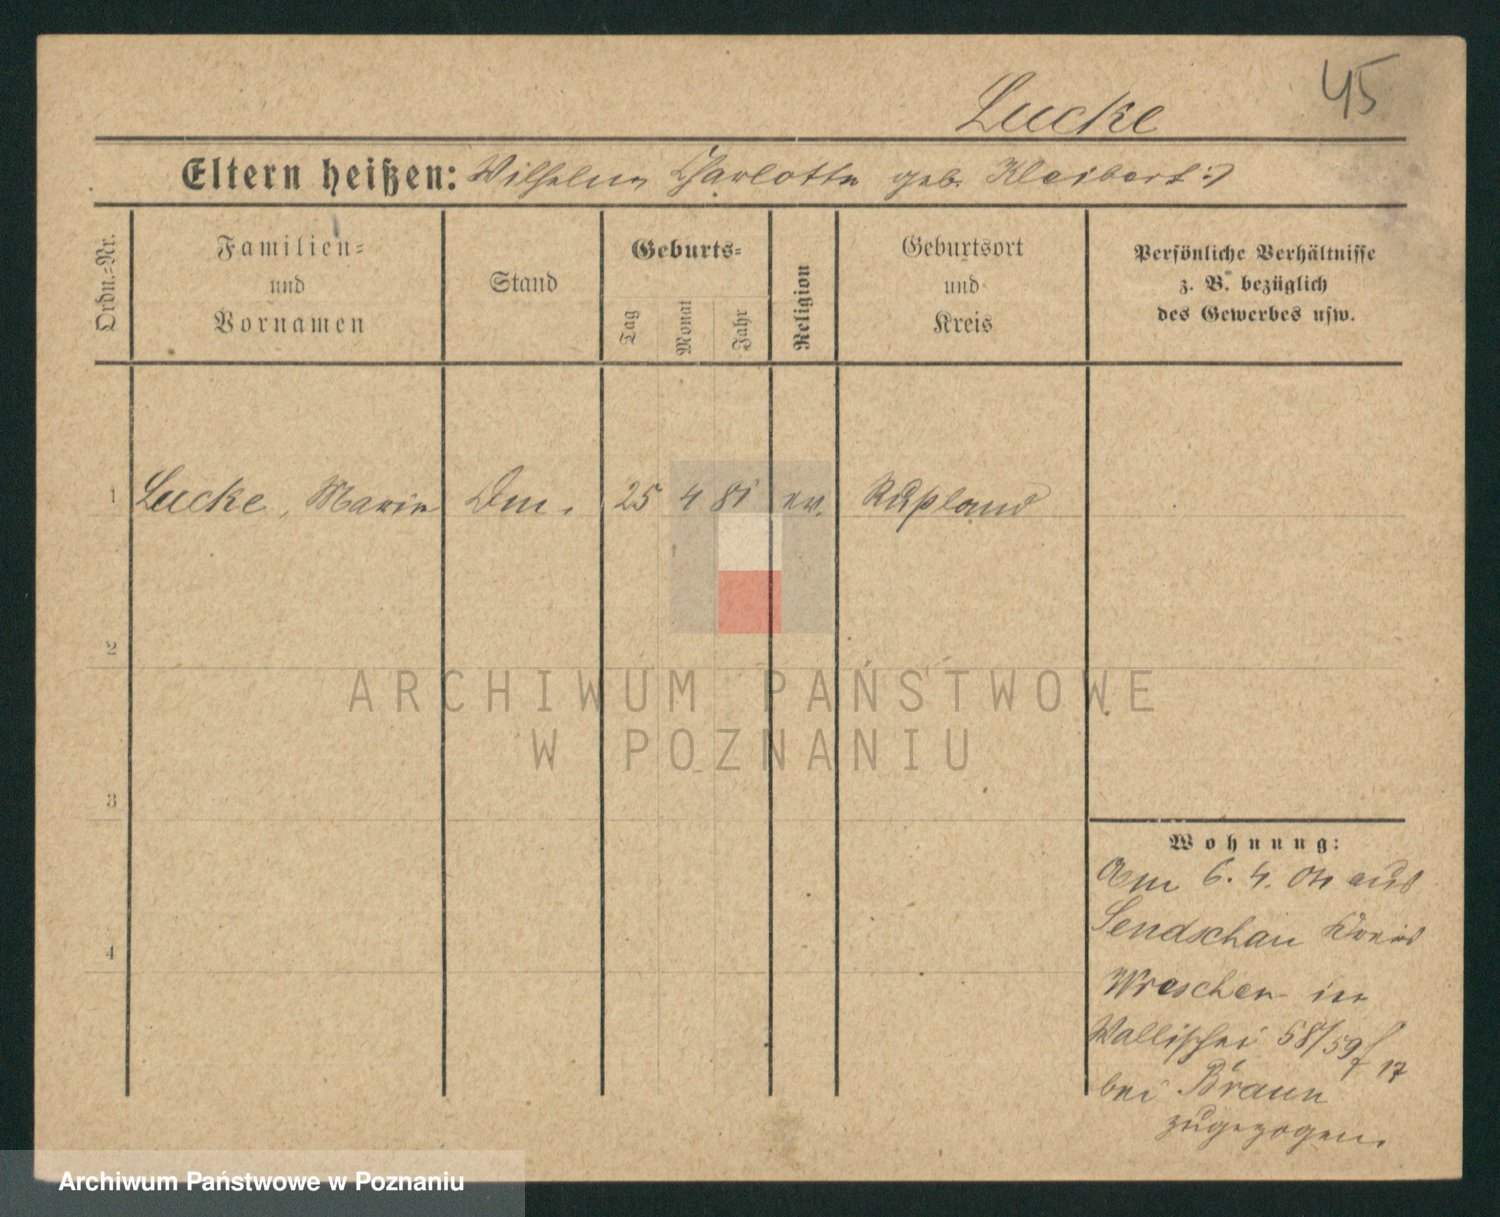 45
Lucke
Eltern heißen: Wilhelm Charlotte geb. Kleibert :)
Ordn.=Nr.
Familien=
und
Vornamen
Stand
Geburts=
Tag
Monat
Jahr
Religion
Geburtsort
und
Kreis
Persönliche Verhältnisse
z. B. bezüglich
des Gewerbes usw.
1 Lucke, Marie Dm. 25 4 81 ev. Rußland
2
3
4
Wohnung:
Am 6. 4. 04 aus
Sendschau Kreis
Wreschen in
Wallischei 58/59 17
bei Braun
zugezogen.
ARCHIWUM PAŃSTWOWE
W POZNANIU
Archiwum Państwowe w Poznaniu